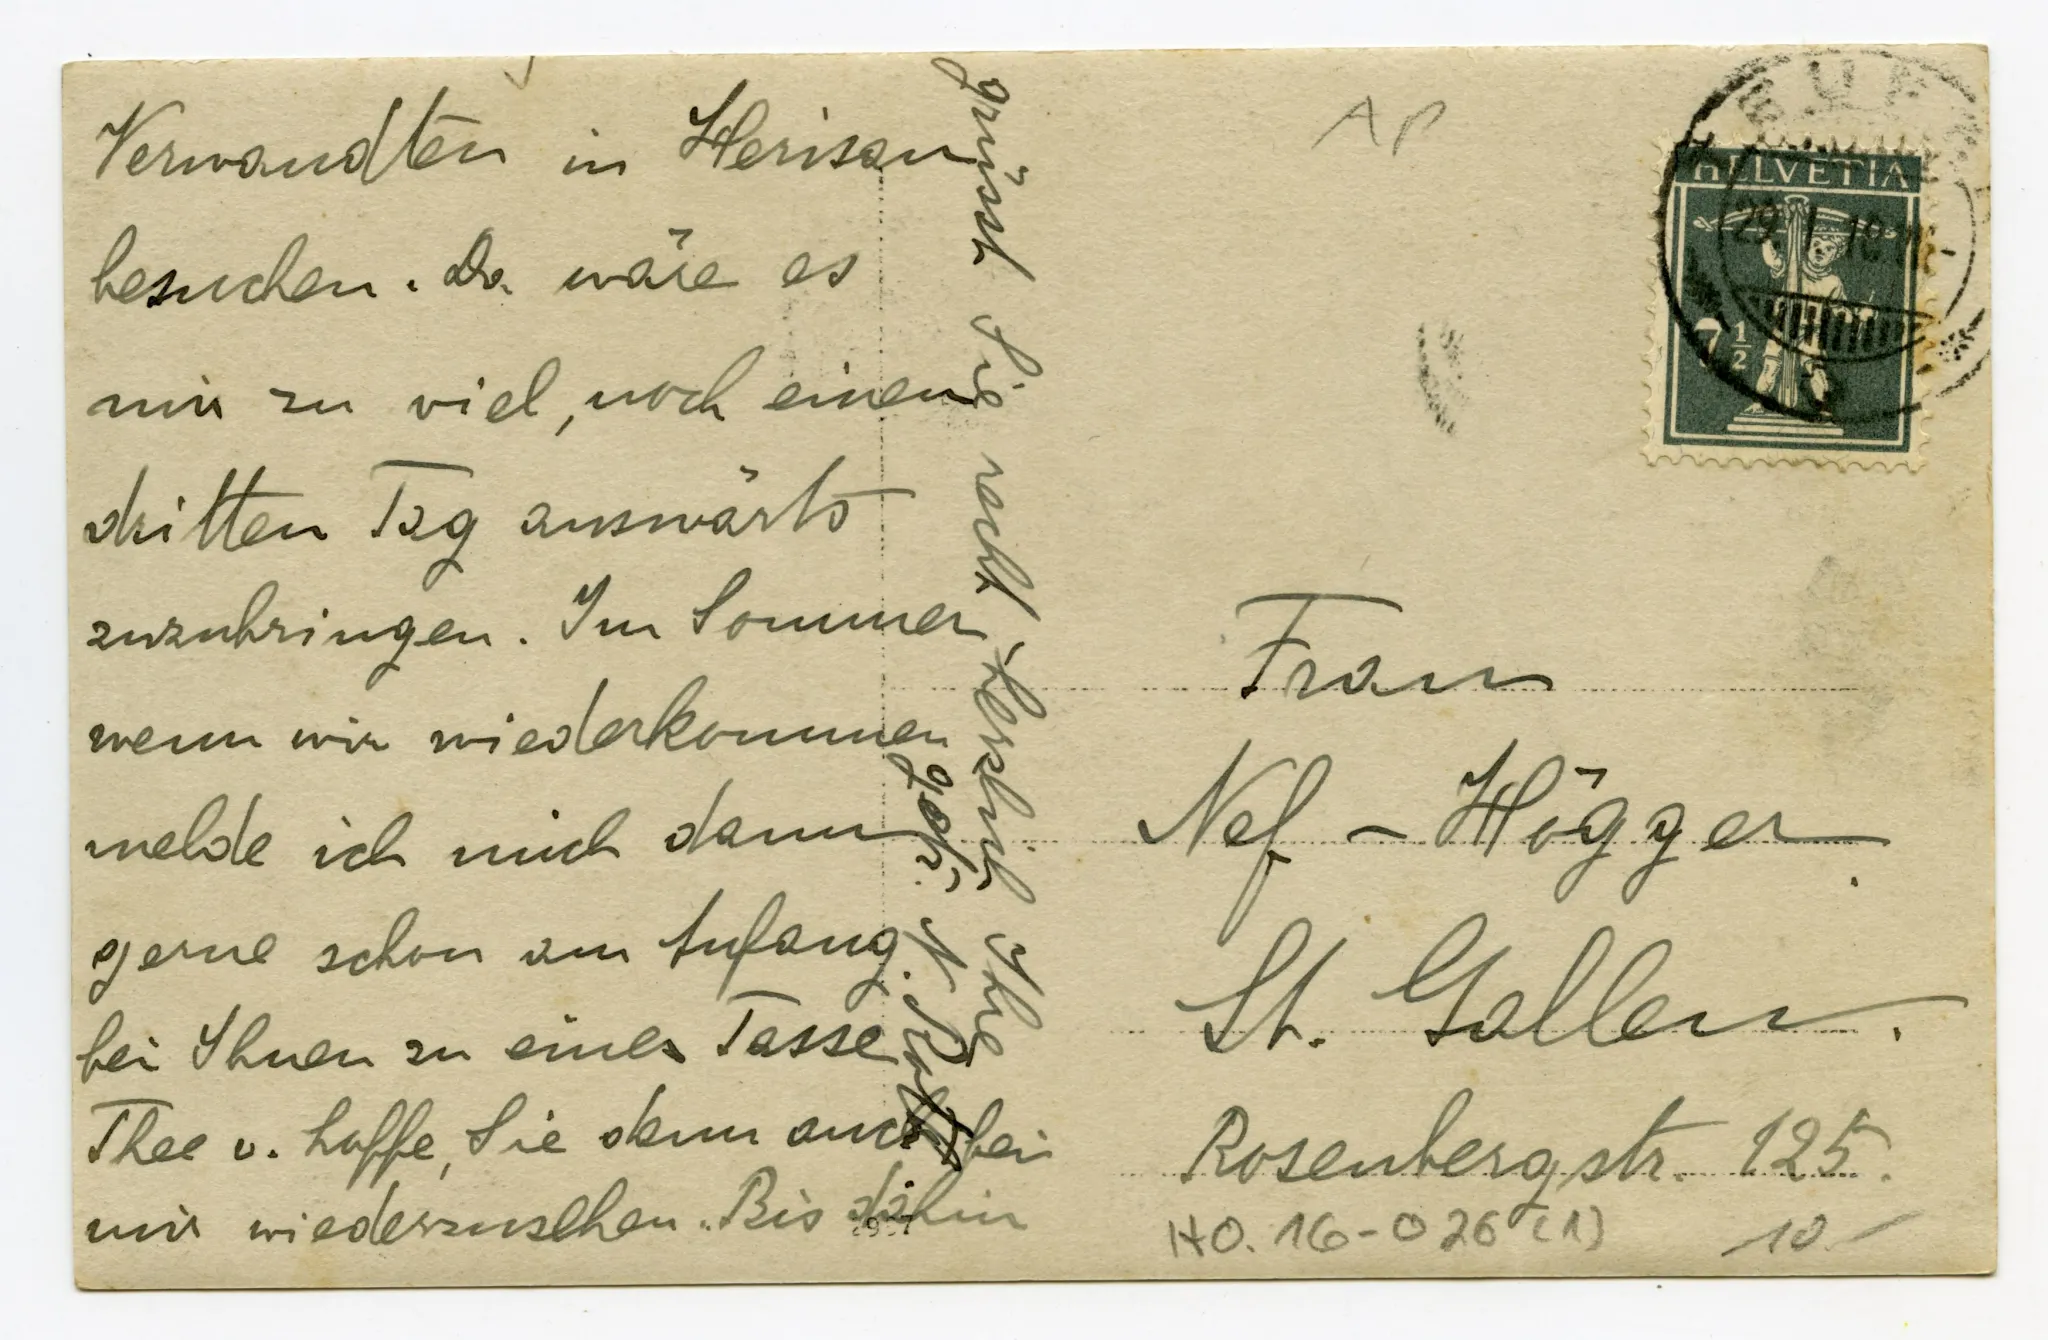 Verwandten in Herisau
besuchen. Da wäre es
mir zu viel, noch einen
dritten Tag auswärts
zuzubringen. Im Sommer
wenn wir wiederkommen
melde ich mich dann
gerne schon am Anfang
bei Ihnen zu einer Tasse
Thee u. hoffe, Sie dann auch bei
mir wiederzusehen. Bis dahin
grüsst Sie recht herzlich Ihre
AP
HELVETIA
7 1/2
Frau
Nef - Högger.
St. Gallen.
Rosenbergstr. 125.
HO. 16-026 (1)
10.-